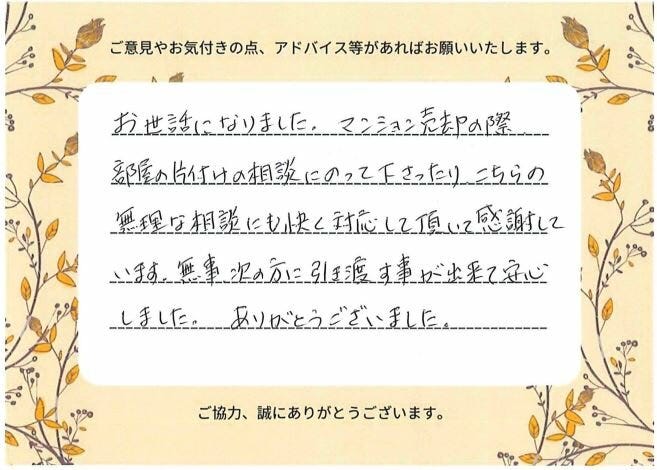 ご意見やお気付きの点、アドバイス等があればお願いいたします。
お世話になりました。マンション売却の際
部屋の片付けの相談にのって下さったり、こちらの
無理な相談にも快く対応して頂いて感謝して
います。無事、次の方に引き渡す事が出来て安心
しました。ありがとうございました。
ご協力、誠にありがとうございます。